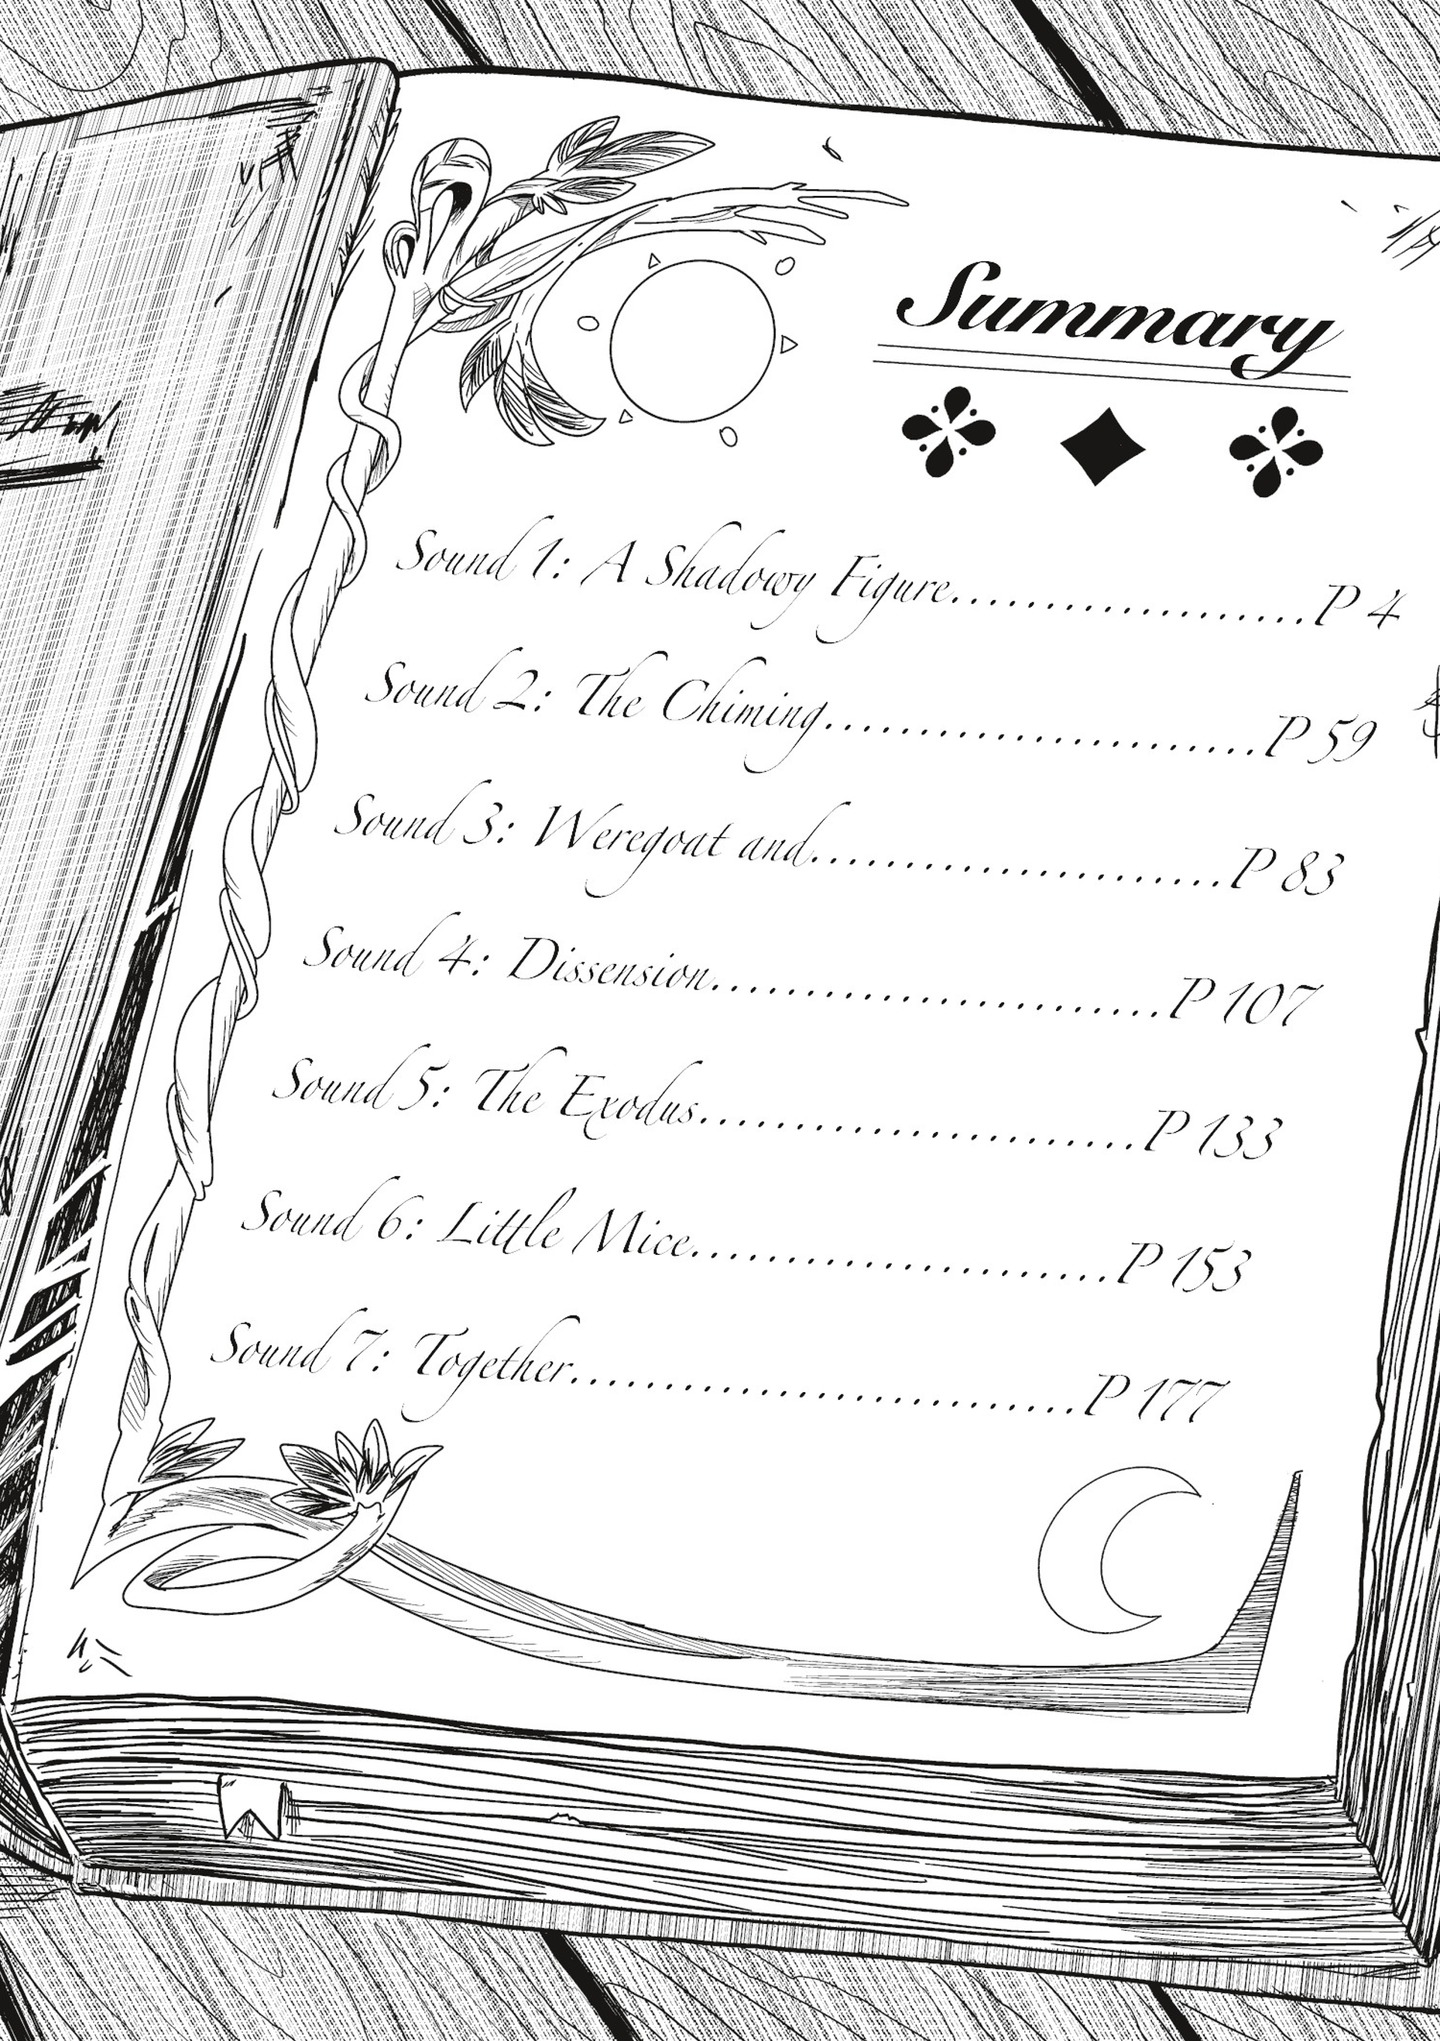 Summary
Sound 1: A Shadowy Figure...................P 4
Sound 2: The Chiming.......................P 59
Sound 3: Weregoat and......................P 83
Sound 4: Dissension........................P 107
Sound 5: The Exodus.......................P 133
Sound 6: Little Mice......................P 153
Sound 7: Together...........................P 177